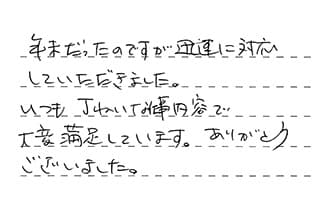 年末だったのですが迅速に対応
していただきました。
いつも丁ねいな内容で
大変満足しています。ありがとう
ございました。